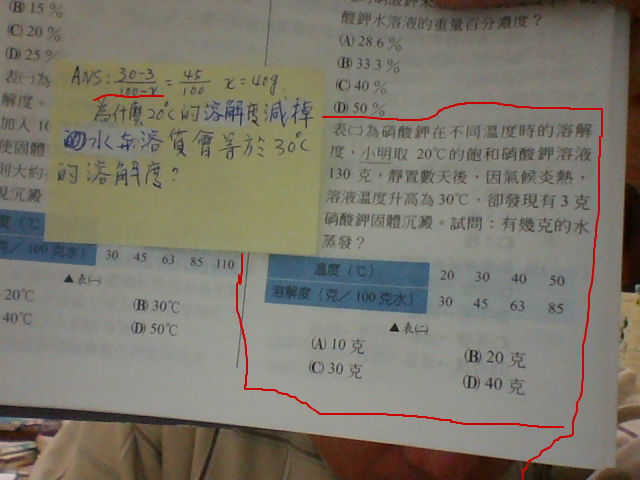 (B) 15 %
(C) 20 %
(D) 25 %
表㈠為
解度。
加入 10
使固體
則大約
現沉澱
ANS: 30-3/100-x = 45/100 x=40g
為什麼20℃的溶解度減掉
的水与溶質會等於30℃
的溶解度?
度(℃)
克/100克水) 30 45 63 85 110
▲表㈠
20℃ (B) 30℃
40℃ (D) 50℃
酸鉀水溶液的重量百分濃度?
(A) 28.6 %
(B) 33.3 %
(C) 40 %
(D) 50 %
表㈡為硝酸鉀在不同溫度時的溶解
度,小明取 20℃的飽和硝酸鉀溶液
130 克,靜置數天後,因氣候炎熱,
溶液溫度升高為30℃,卻發現有 3 克
硝酸鉀固體沉澱。試問:有幾克的水
蒸發?
溫度(℃) 20 30 40 50
溶解度(克/100克水) 30 45 63 85
▲表㈡
(A) 10 克 (B) 20 克
(C) 30 克 (D) 40 克